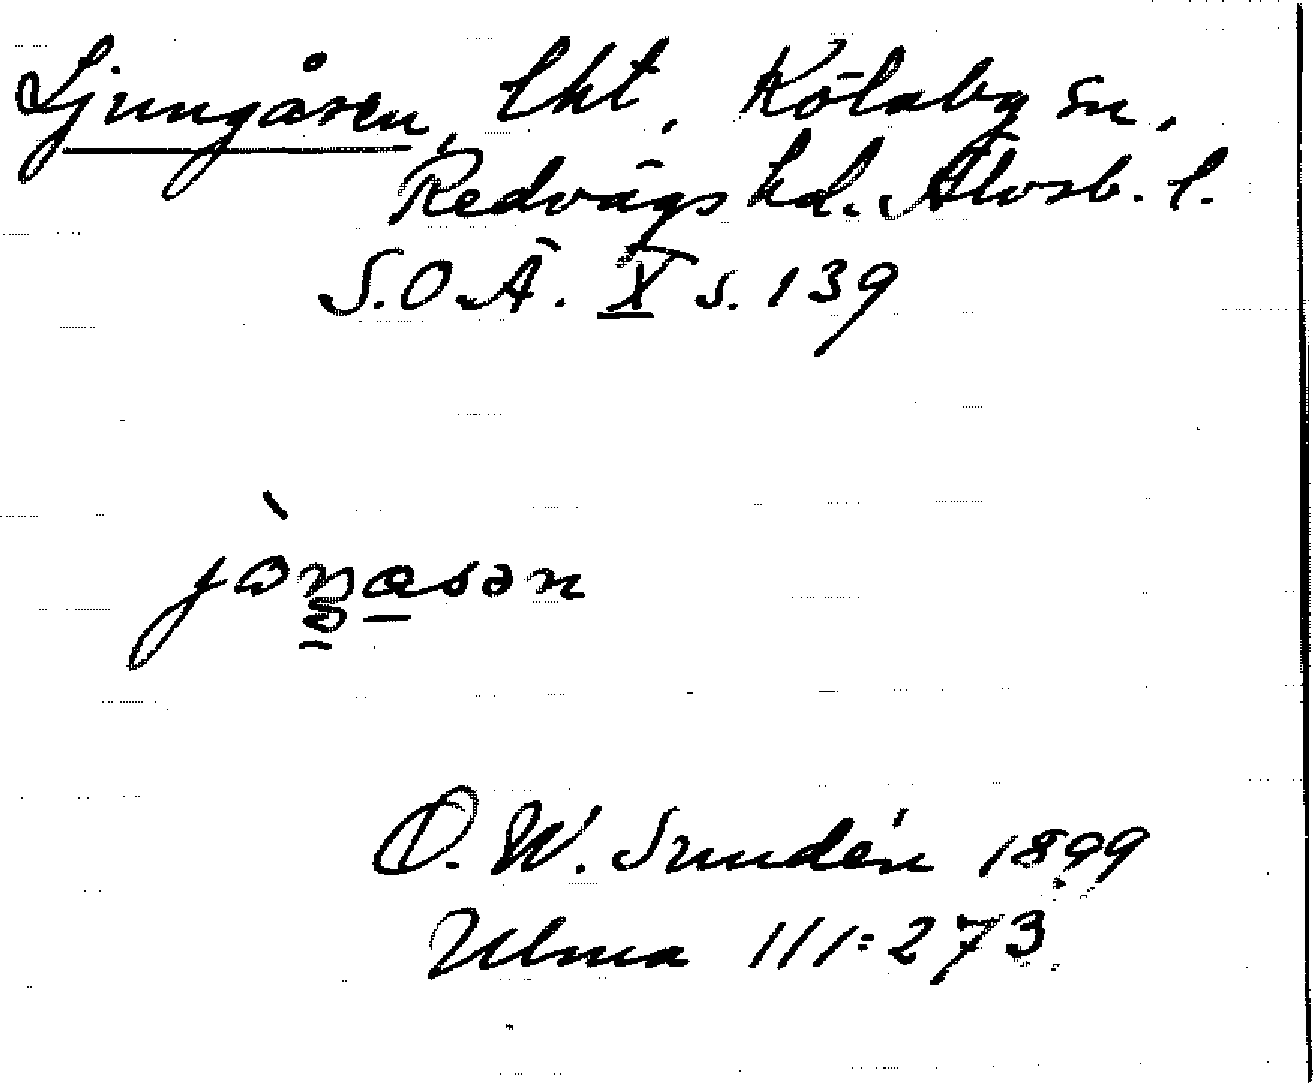 Ljungåsen, lht, Kölaby sn,
Redvägs hd. Älvsb. l.
S.O.Ä. X s. 139
D. W. Sundén 1899
Ulma 111:273